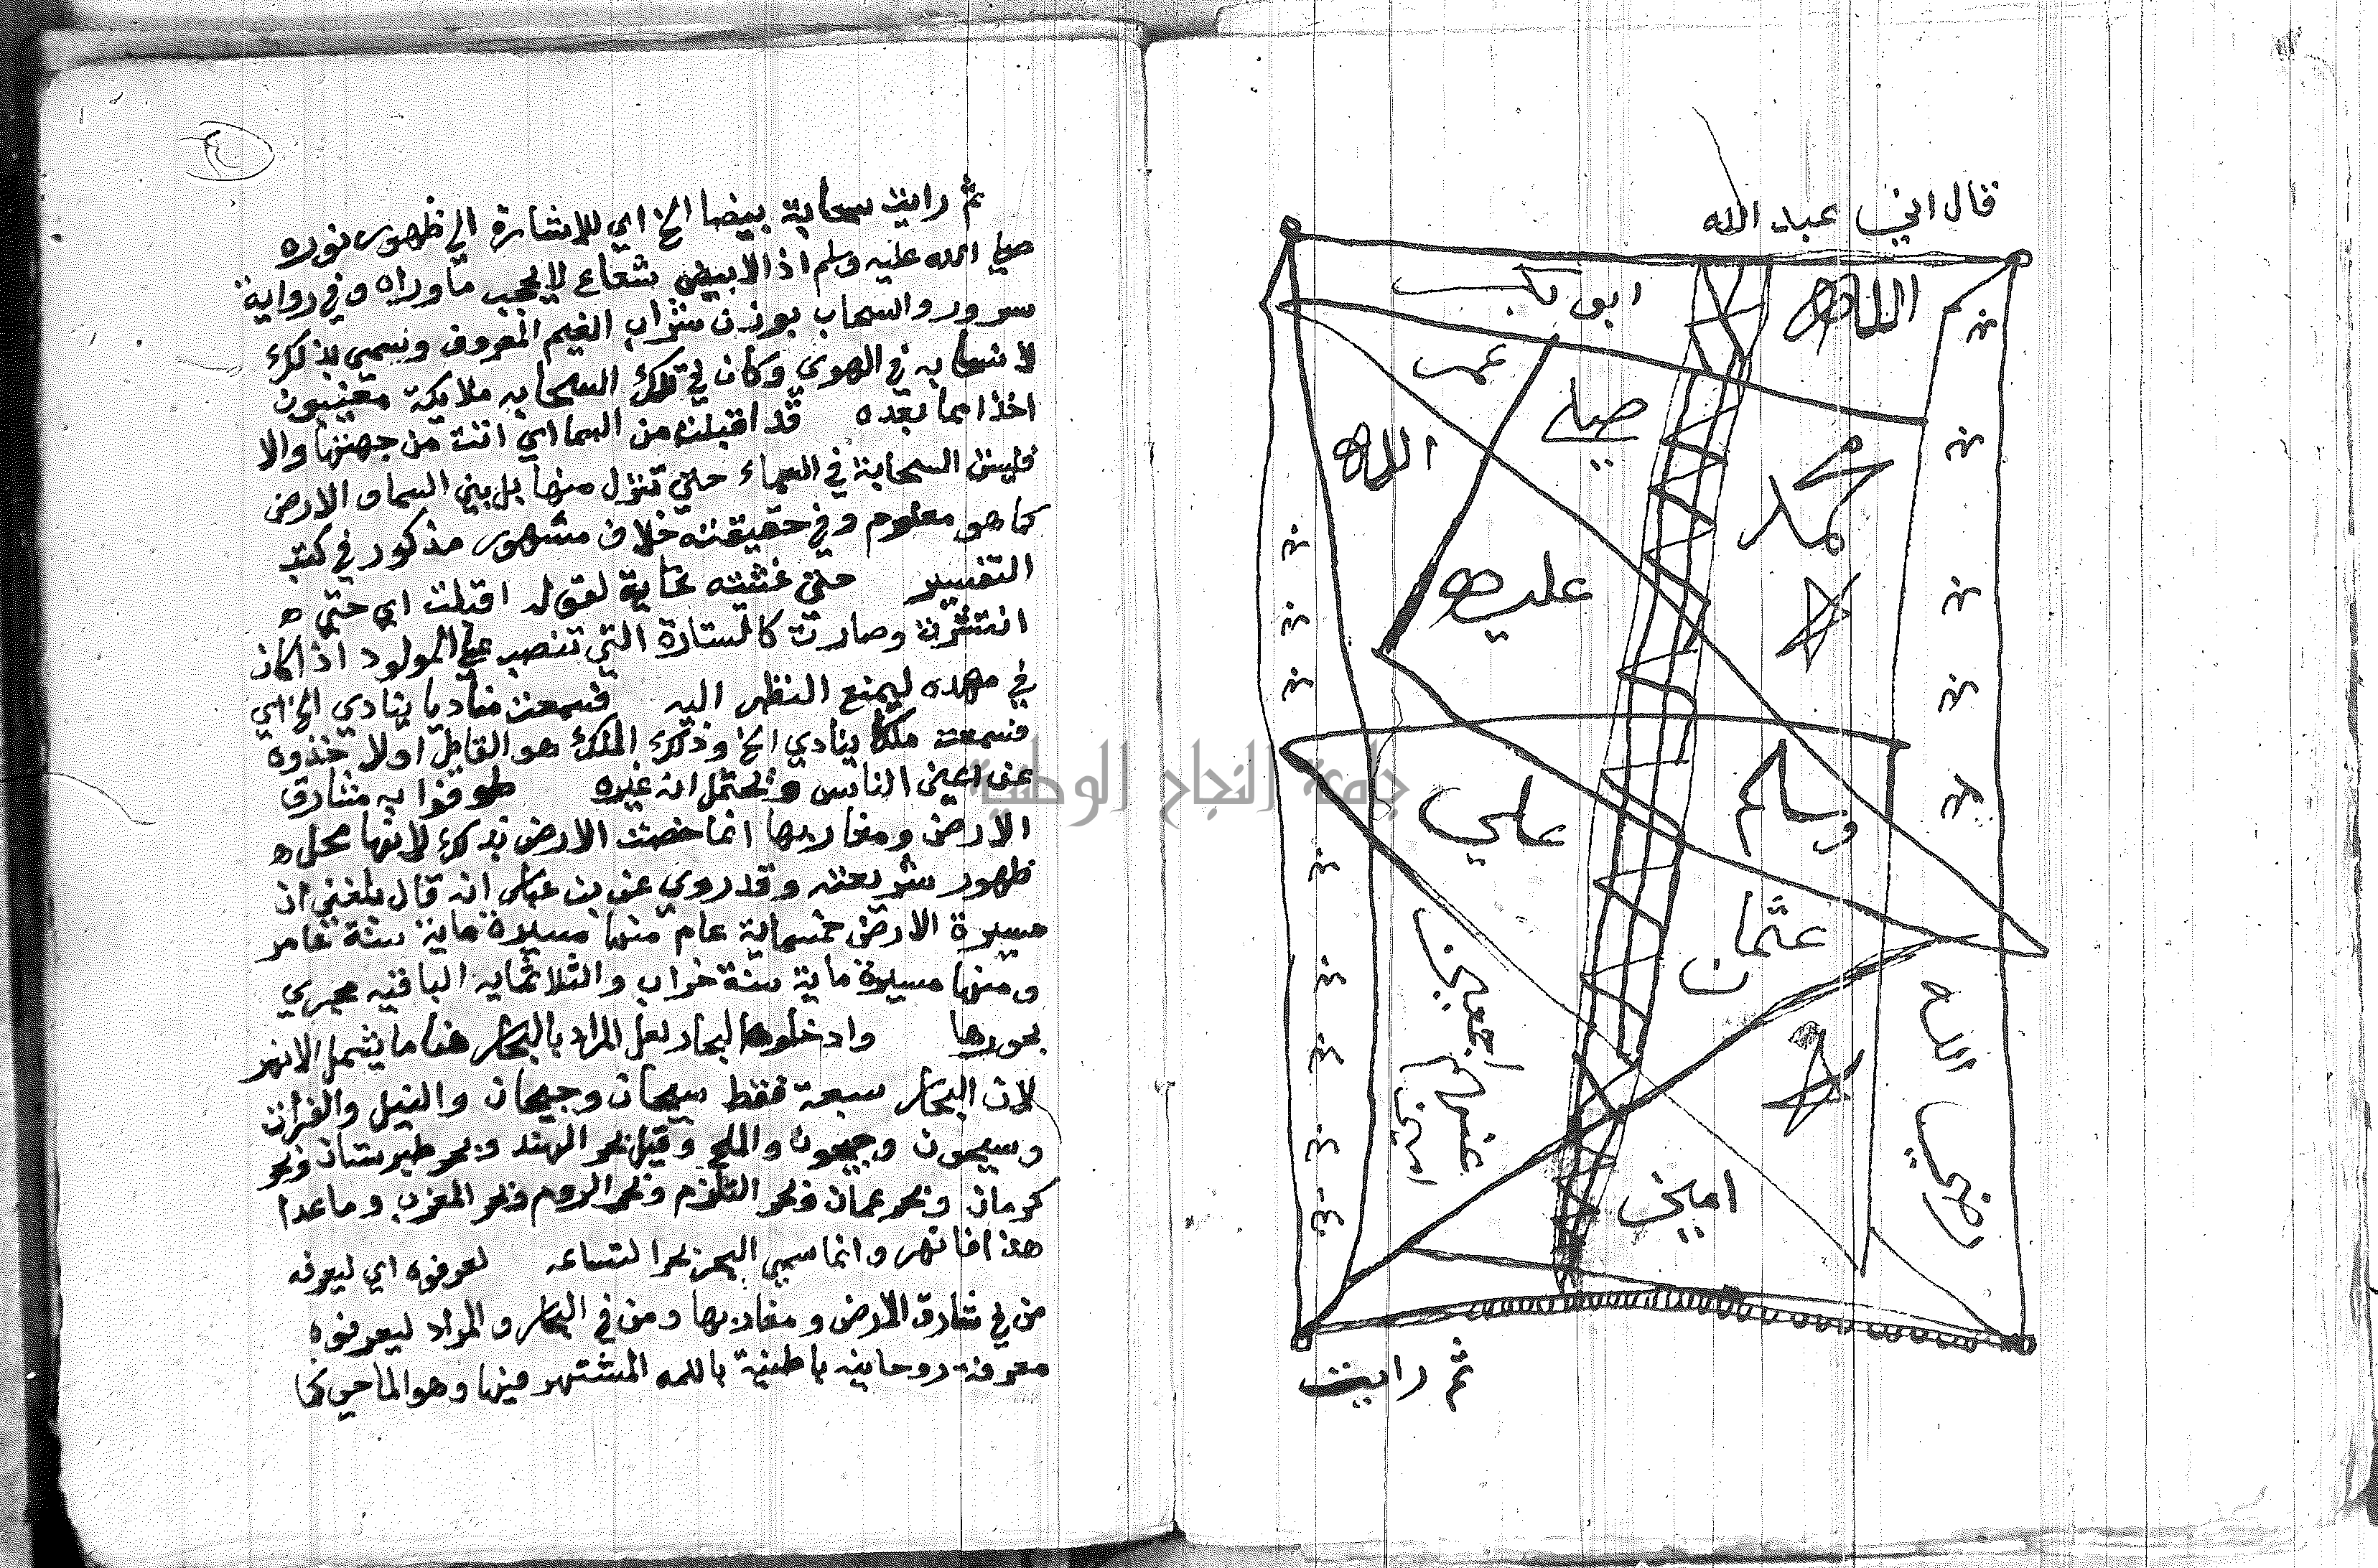 قال اني عبد الله
الله
ابو بكر
عمر
صلى
الله
محمد
عليه
وسلم
علي
عثمان
رضي
الله
عنهم
اجمعين
امين
امين
ثم رايت
ثم رايت سحابة بيضا الخ اي للاشارة الي ظهور نوره
صلي الله عليه وسلم اذ الابيض شعاع لا يحجب ما وراه وفي رواية
سرور والسحاب بوزن شراب الغيم المعروف وسمي بذلك
لانسحابه في الهوي وكان في تلك السحابه ملايكة مغيبون
اخذا مما بعده قد اقبلت من السما اي اتت من جهتها والا
فليس السحابة في السماء حتي تنزل منها بل بين السما والارض
كما هو معلوم وفي حقيقته خلاف مشهور مذكور في كتب
التفسير حتي غشيته غاية لقوله اقبلت اي حتي
انتشرت وصارت كالستارة التي تنصب علي المولود اذا كان
في مهده ليمنع النظر اليه فسمعت مناديا ينادي الخ اي
فسمعت ملكا ينادي الخ وذلك الملك هو القايل اولا خذوه
عن اعين الناس ويحتمل انه غيره طوفوا به مشارق
الارض ومغاربها انما خصت الارض بذلك لانها محل
ظهور شريعته وقد روي عن بن عباس انه قال بلغني ان
مسيرة الارض خمسماية عام منها مسيرة ماية سنة عامر
ومنها مسيرة ماية سنة خراب والثلاثمايه الباقيه مجري
بحورها وادخلوها البحار لعل المراد بالبحار هنا ما يشمل الانهر
لان البحار سبعة فقط سيحان وجيحان والنيل والفرات
وسيحون وجيحون والملح وقيل بحر الهند وبحر طبرستان وبحر
كرمان وبحر عمان وبحر القلزم وبحر الروم وبحر المغرب وما عدا
هذا فانهر وانما سمي البحر بحرا لتساعه لعرفوه اي ليعرفه
من في مشارق الارض ومغاربها ومن في البحار والمراد ليعرفوه
معرفة روحانيه باطنية باسمه المشتهر فيها وهو الماحي كما
جامعة النجاح الوطنية